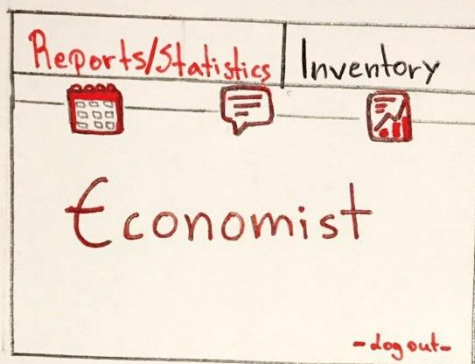 Reports/Statistics Inventory
€conomist
-Log out-